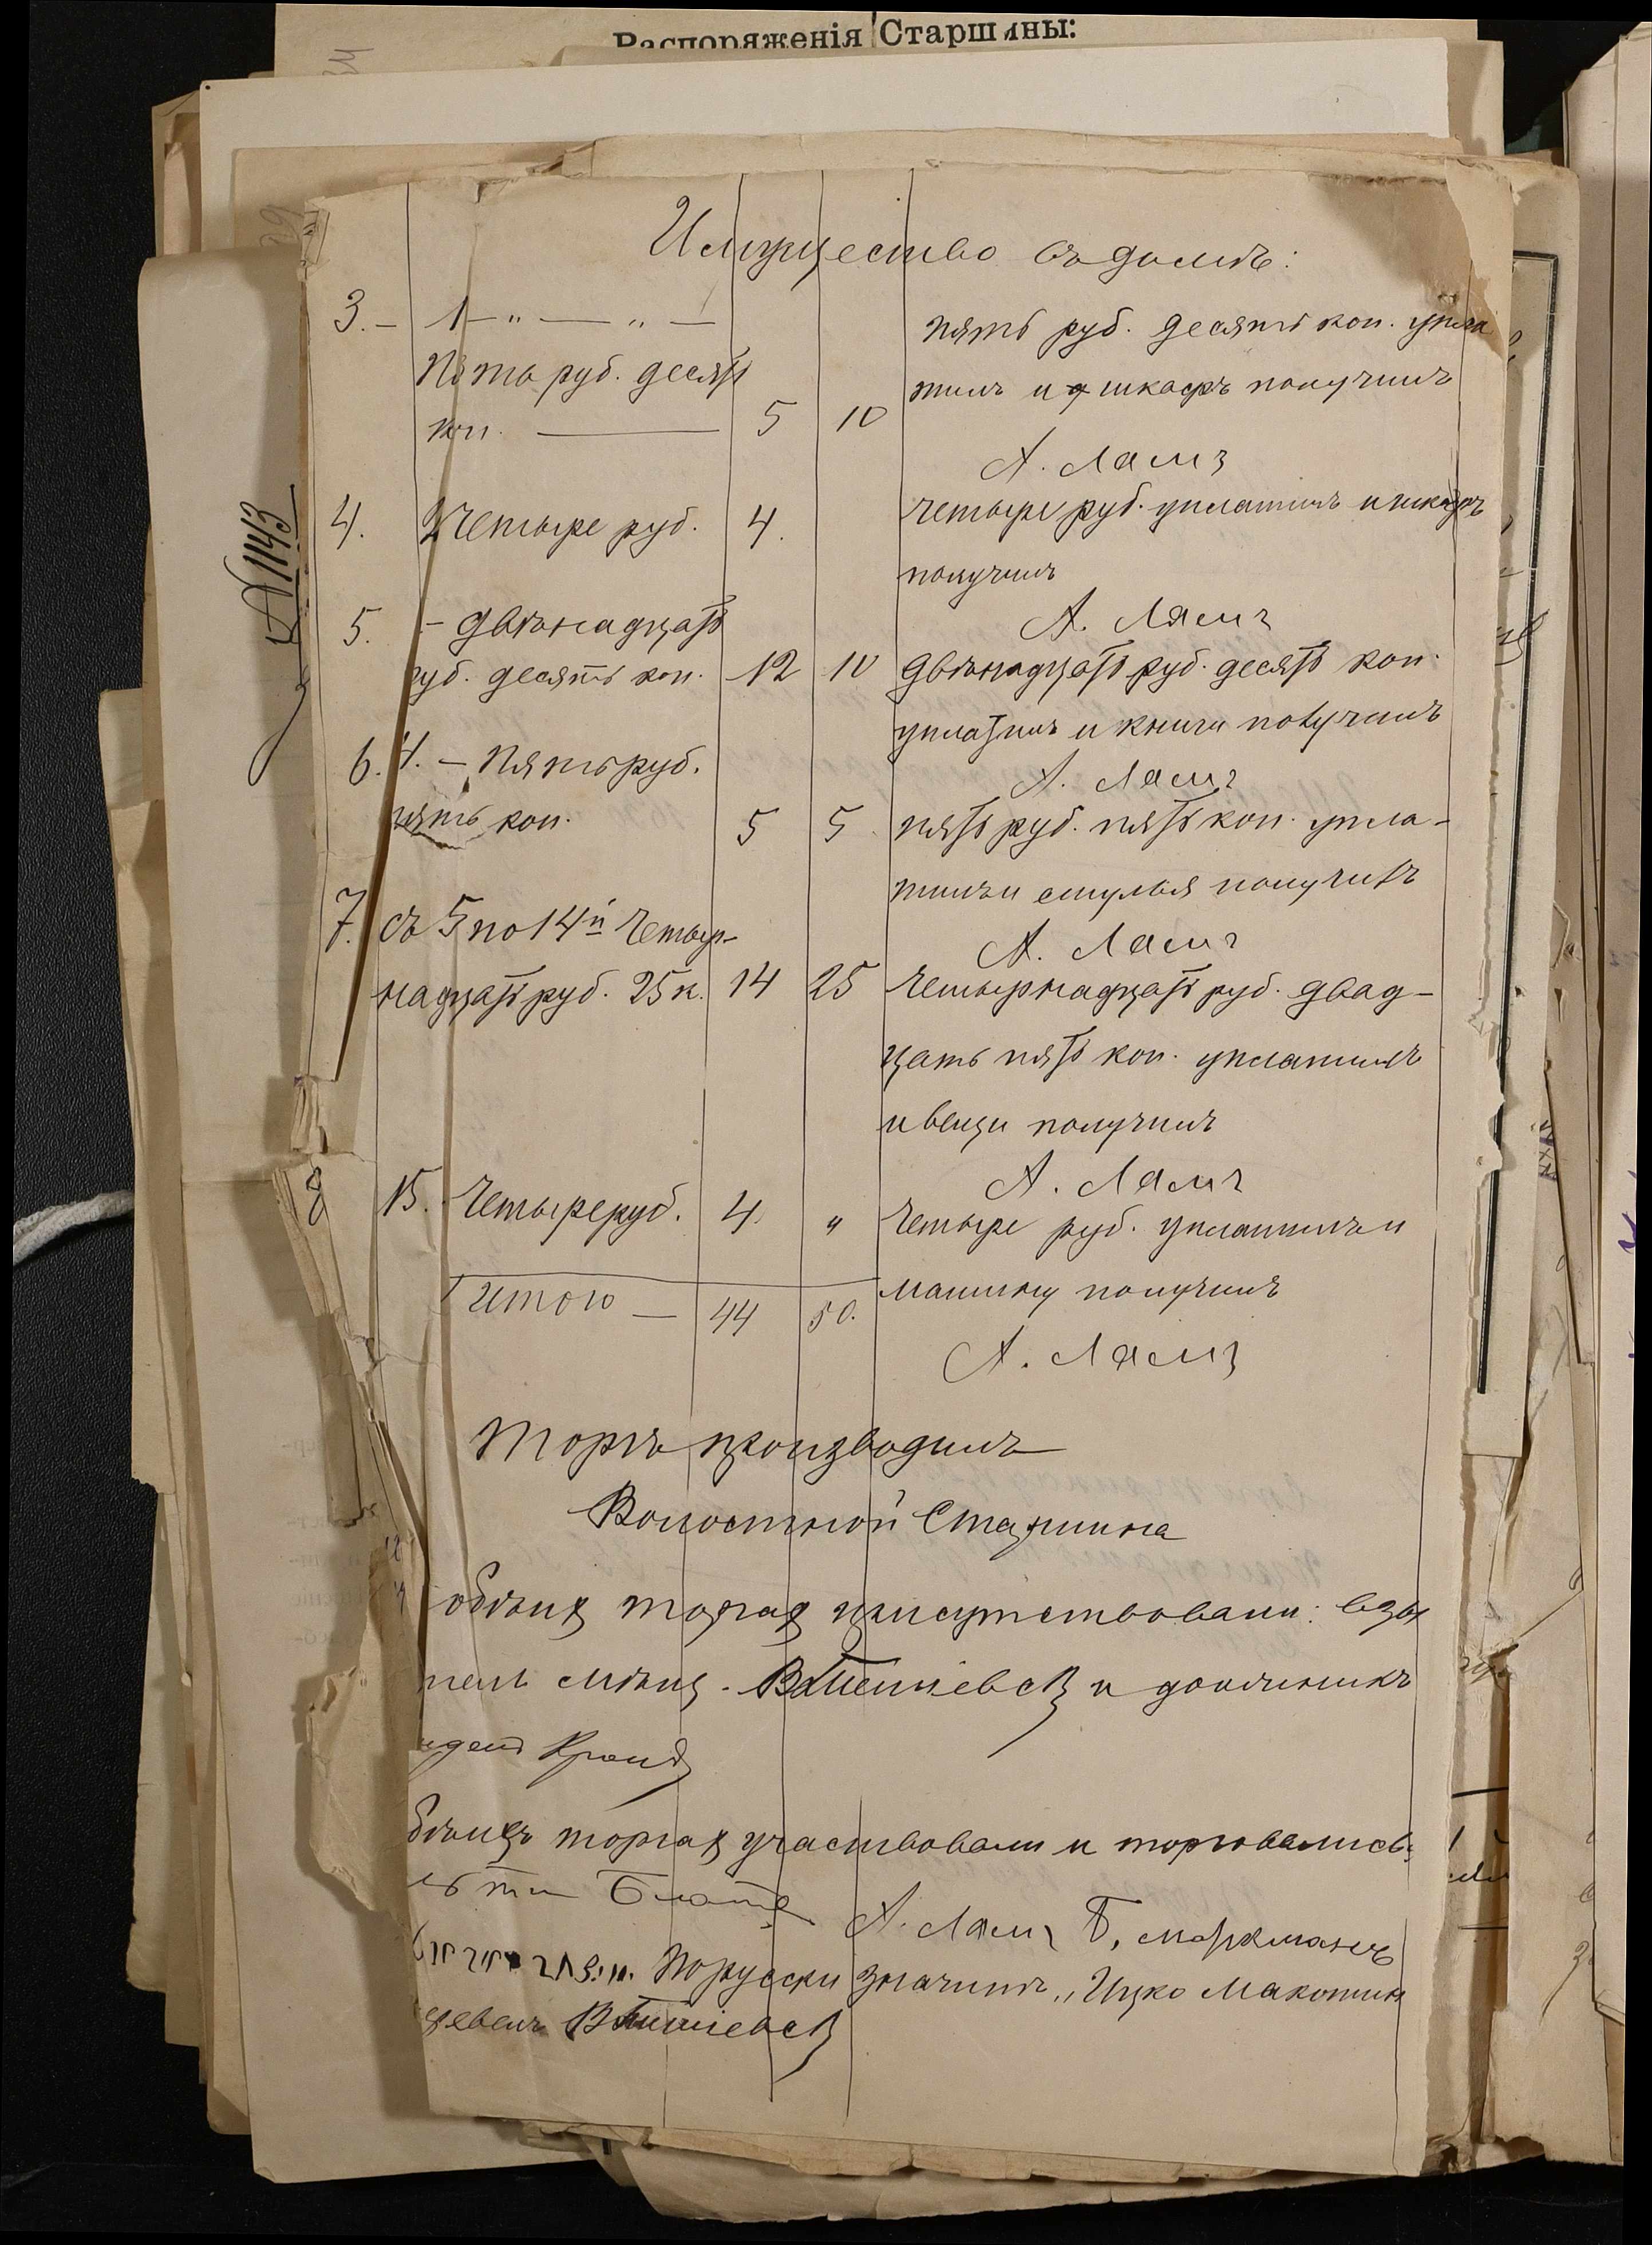 Распоряженія Старшины:
№ 1143
Имущество въ домѣ:
3. — 1 — „ — „ —
Пять руб. десять
коп. — 5 10
пять руб. десять коп. упла
тилъ и шкафъ получилъ
А. Лямъ
4. 2 Четыре руб. 4.
четыре руб. уплатилъ и шкафъ
получилъ
А. Лямъ
5. — двѣнадцать
руб. десять коп. 12 10
двѣнадцать руб. десять коп.
уплатилъ и книги получилъ
А. Лямъ
6. 4. — Пять руб.
пять коп. 5 5
пять руб. пять коп. упла-
тилъ и стулья получилъ
А. Лямъ
7. съ 5 по 14й Четыр-
надцать руб. 25 к. 14 25
Четырнадцать руб. двад-
цать пять коп. уплатилъ
и вещи получилъ
А. Лямъ
8 15. Четыре руб. 4. „
Четыре руб. уплатилъ и
машину получилъ
Итого — 44 50.
А. Лямъ
Торгъ производилъ
Волостной Старшина
обѣихъ торгахъ присутствовали: взы
тель мѣщ. и должникъ
бѣихъ торгахъ участвовали и торговались:
А. Лямъ Б. Маркманъ
По русски значитъ „Ицко